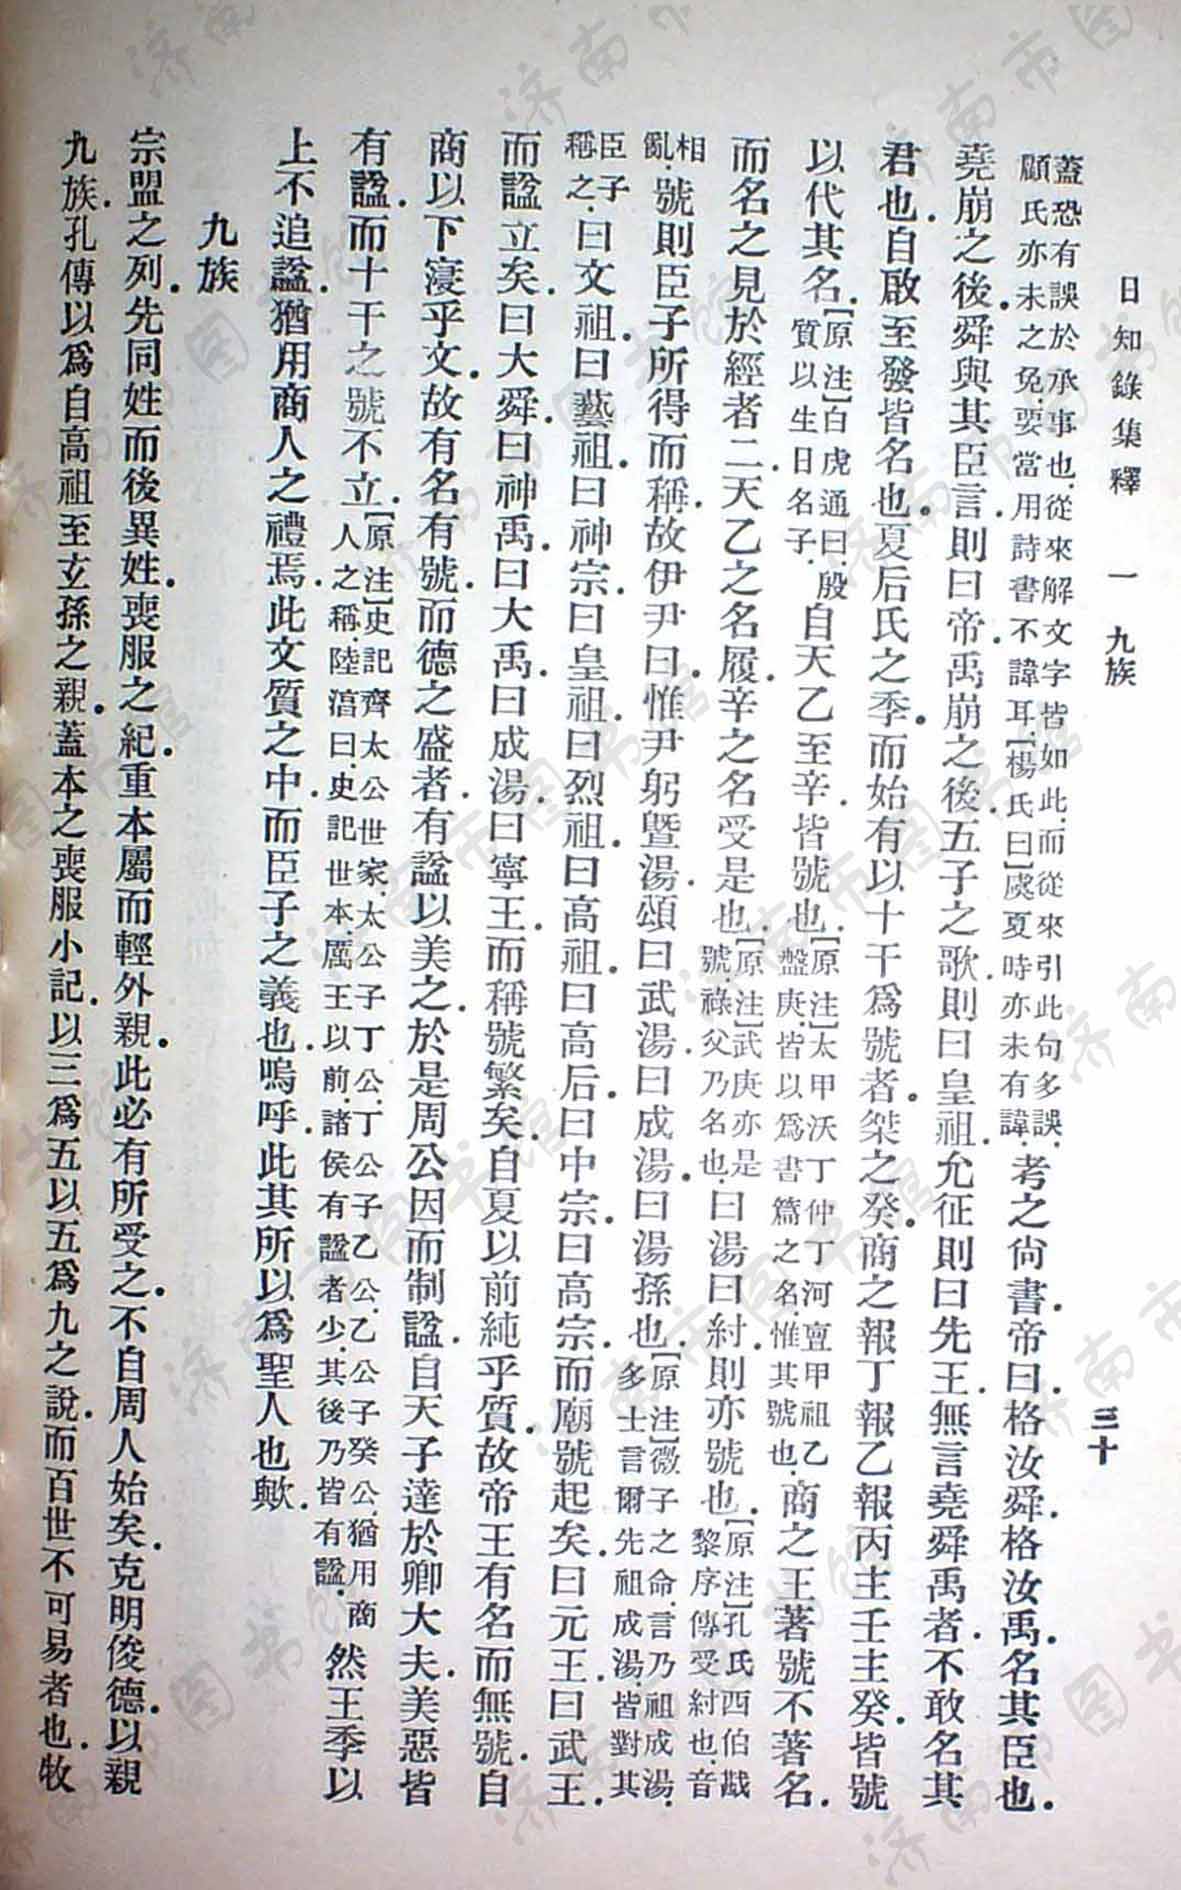 日知錄集釋 一 九族 三十
蓋恐有誤於承事也.從來解文字皆如此.而從來引此句多誤.
顧氏亦未之免.要當用詩書不諱耳.[楊氏曰]虞夏時亦未有諱.考之尙書.帝曰.格汝舜.格汝禹.名其臣也.
堯崩之後.舜與其臣言.則曰帝.禹崩之後.五子之歌.則曰皇祖.允征則曰先王.無言堯舜禹者.不敢名其
君也.自啟至發皆名也.夏后氏之季.而始有以十干爲號者.桀之癸.商之報丁報乙報丙主壬主癸.皆號
以代其名.[原注]白虎通曰.殷質以生日名子.自天乙至辛.皆號也.[原注]太甲沃丁仲丁河亶甲祖乙盤庚.皆以爲書篇之名.惟其號也.商之王著號不著名.
而名之見於經者二.天乙之名履.辛之名受是也.[原注]武庚亦是號.祿父乃名也.曰湯曰紂.則亦號也.[原注]孔氏西伯戡黎序傳受紂也.音
相亂.號則臣子所得而稱.故伊尹曰.惟尹躬曁湯.頌曰武湯.曰成湯.曰湯孫也.[原注]微子之命.言乃祖成湯.多士言爾先祖成湯.皆對其
臣子稱之.曰文祖.曰藝祖.曰神宗.曰皇祖.曰烈祖.曰高祖.曰高后.曰中宗.曰高宗.而廟號起矣.曰元王.曰武王.
而諡立矣.曰大舜.曰神禹.曰大禹.曰成湯.曰寧王.而稱號繁矣.自夏以前純乎質.故帝王有名而無號.自
商以下寖乎文.故有名有號.而德之盛者.有諡以美之.於是周公因而制諡.自天子達於卿大夫.美惡皆
有諡.而十干之號不立.[原注]史記齊太公世家.太公子丁公.丁公子乙公.乙公子癸公.猶用商人之稱.陸淳曰.史記世本.厲王以前.諸侯有諡者少.其後乃皆有諡.然王季以
上不追諡.猶用商人之禮焉.此文質之中.而臣子之義也.嗚呼.此其所以爲聖人也歟.
九族
宗盟之列.先同姓而後異姓.喪服之紀.重本屬而輕外親.此必有所受之.不自周人始矣.克明俊德.以親
九族.孔傳以爲自高祖至玄孫之親.蓋本之喪服小記.以三爲五以五爲九之說.而百世不可易者也.牧